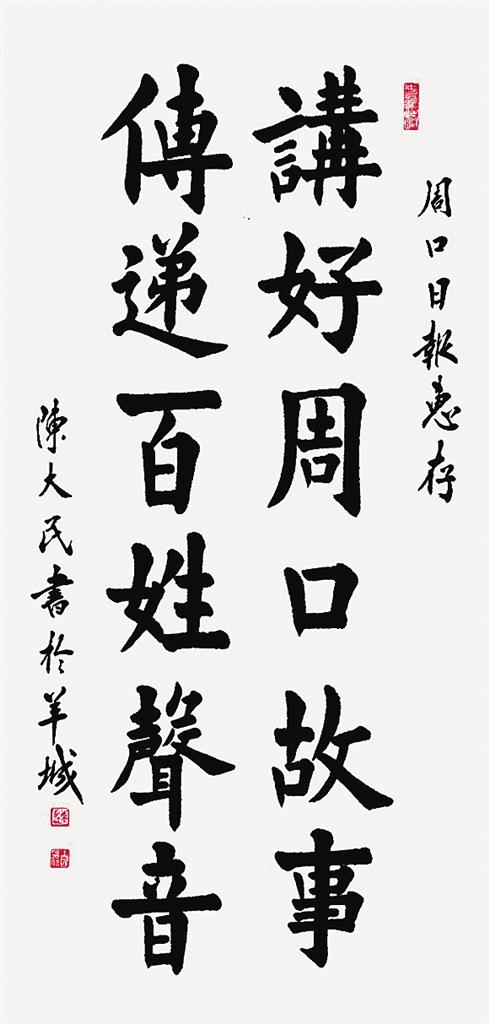 周口日報惠存
講好周口故事
傳递百姓聲音
陳大民書於羊城